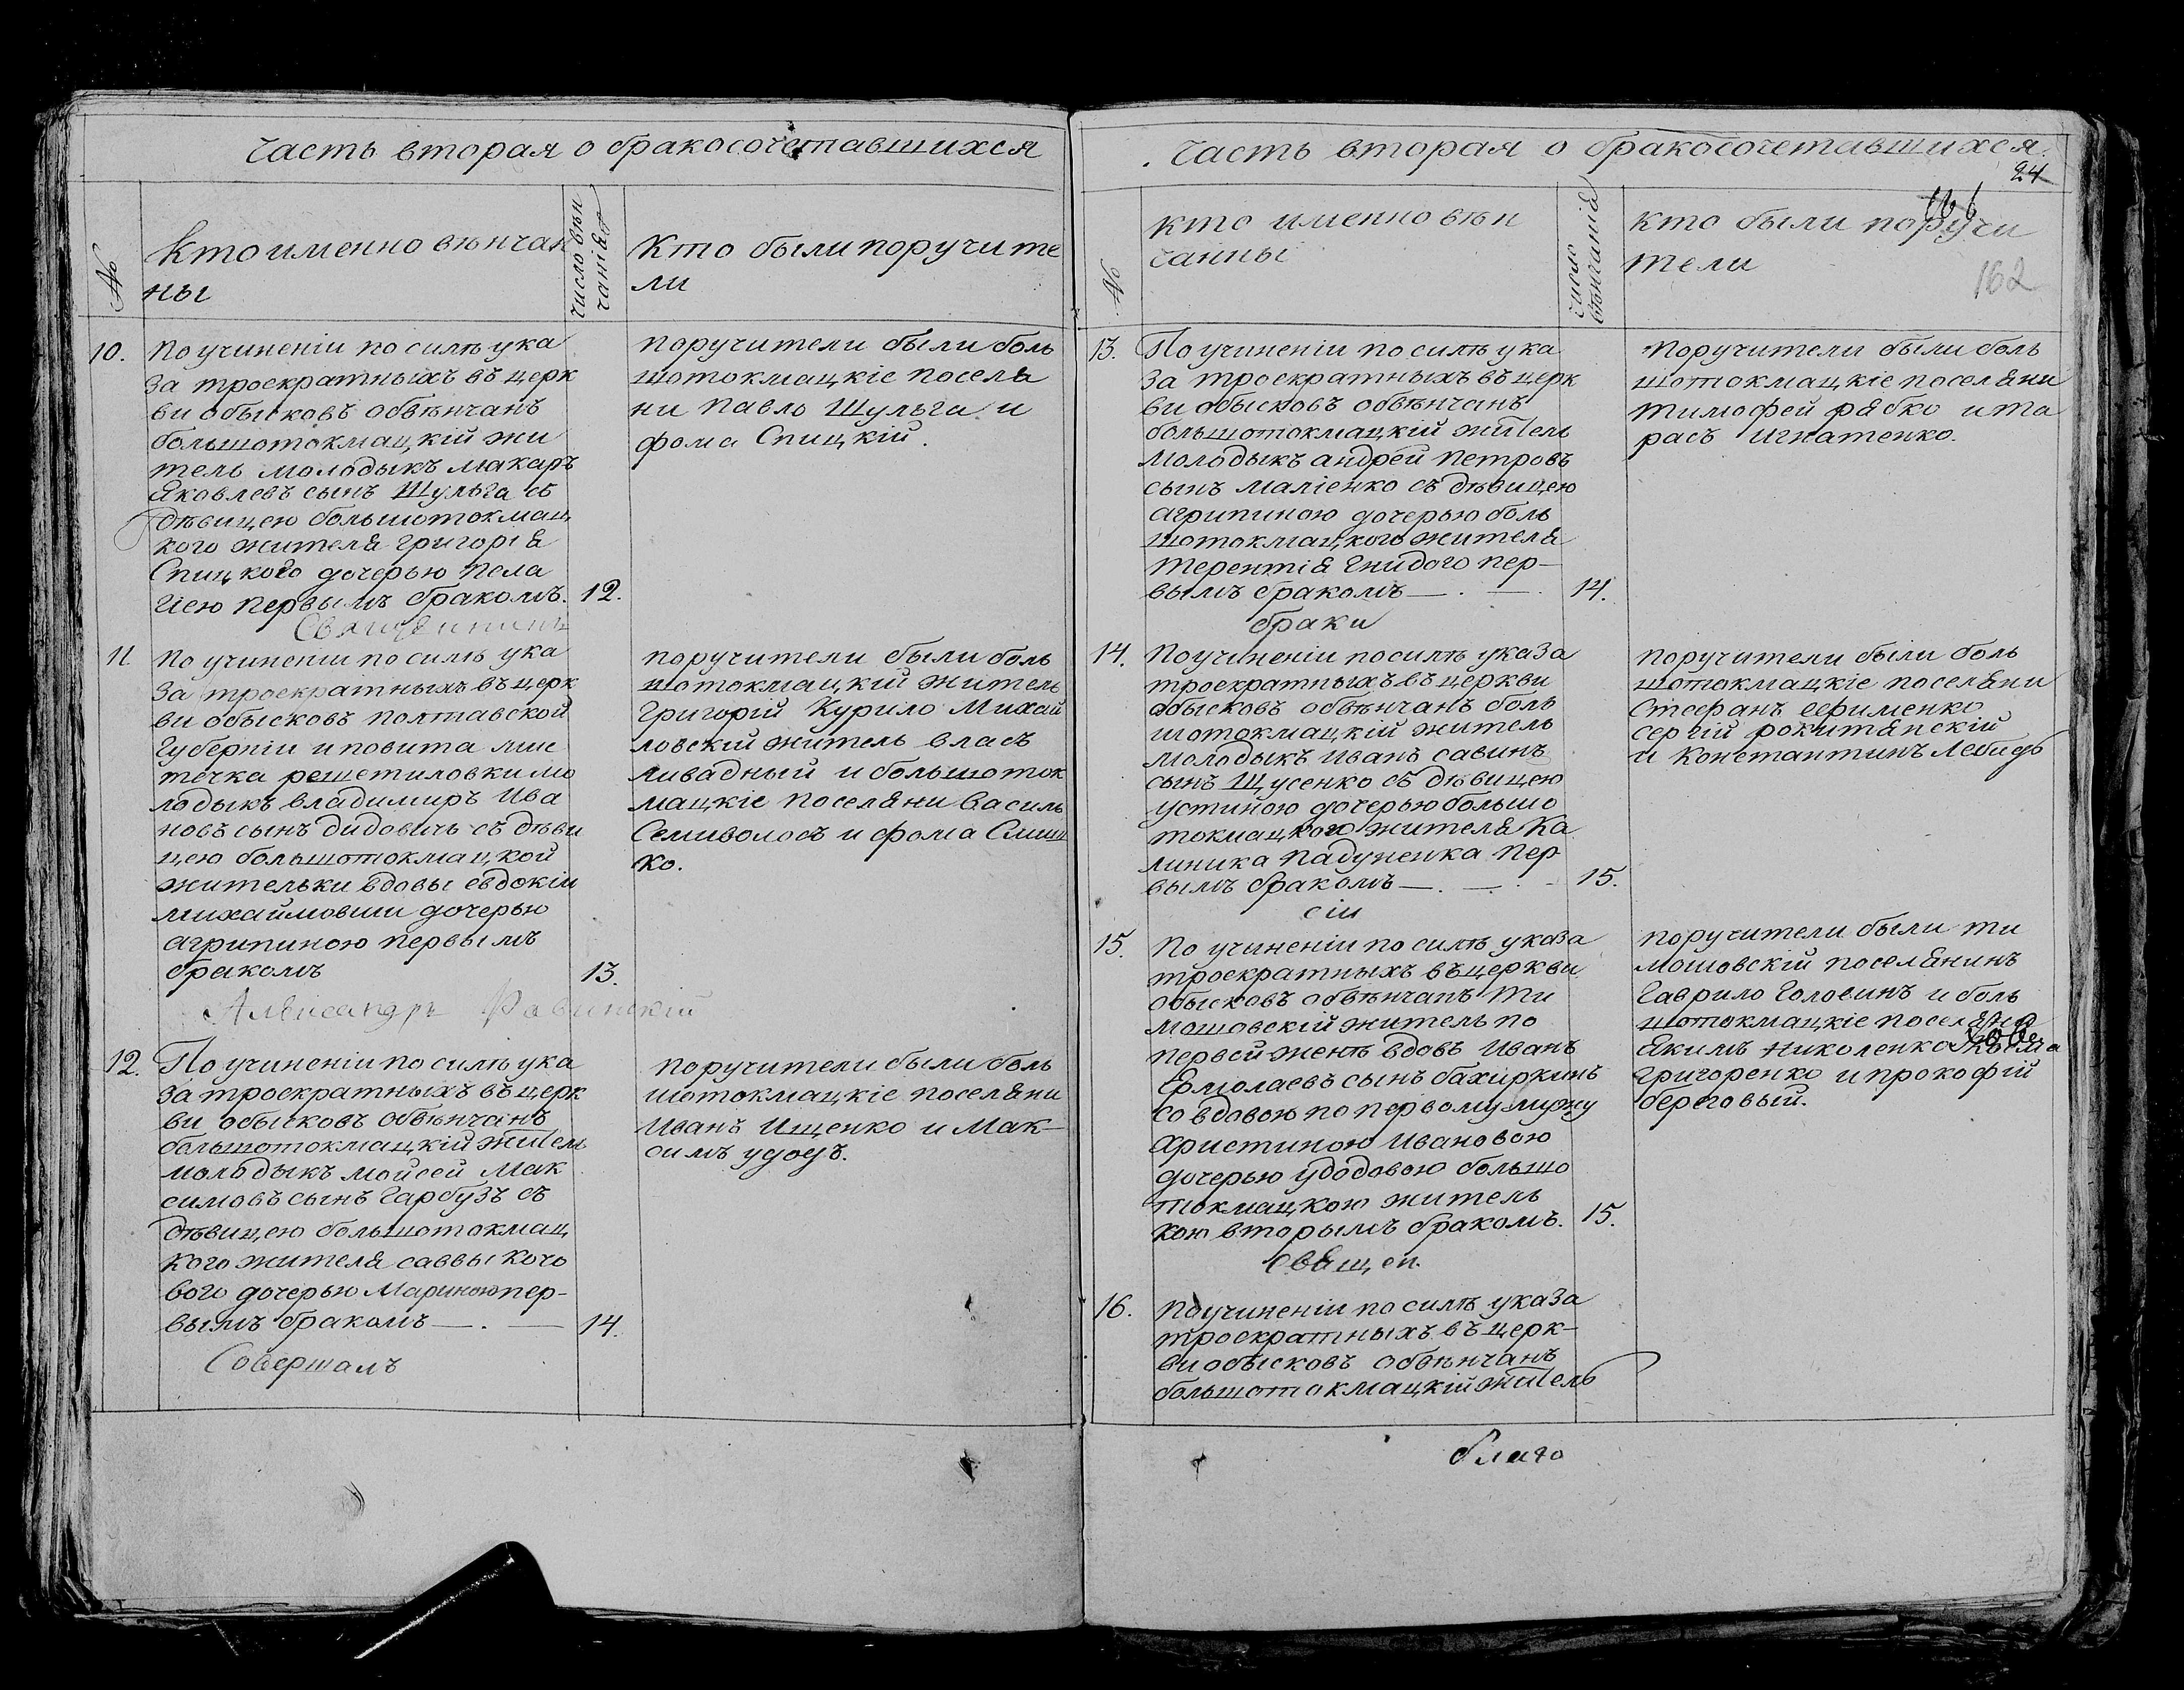 часть вторая о бракосочетавшихся
№
кто именно вѣнчан
ны
число вѣн
чанія
кто были поручите
ли
10.
По учиненіи по силѣ ука
за троекратныхъ въ церк
ви обысковъ обвѣнчанъ
большотокмацкій жи
тель молодыкъ макаръ
яковлевъ сынъ Шульга съ
дѣвицею большотокмац
кого жителя григорія
Спицкого дочерью пела
гіею первымъ бракомъ.
12.
поручители были боль
шотокмацкіе поселя
ни павло Шульга и
фома Спицкій.
11.
по учиненіи по силѣ ука
за троекратныхъ въ церк
ви обысковъ полтавской
губерніи и повита мис
течка решетиловки мо
лодыкъ владимиръ ива
новъ сынъ дидовичь съ дѣви
цею большотокмацкой
жительки вдовы евдокіи
михайловши дочерью
агрипиною первымъ
бракомъ
13.
поручители были боль
шотокмацкій житель
григорій Курило Михай
ловскій житель власъ
ливадный и большоток
мацкіе поселяни василь
Семиволосъ и фома Слиш
ко.
Александръ
12.
По учиненіи по силѣ ука
за троекратныхъ въ церк
ви обысковъ обвѣнчанъ
большотокмацкій житель
молодыкъ мойсей Мак
симовъ сынъ гарбузъ съ
дѣвицею большотокмац
кого жителя саввы кочо
вого дочерью Мариною пер-
вымъ бракомъ —. —
14.
поручители были боль
шотокмацкіе поселяни
иванъ Ищенко и Мак-
симъ удодъ.
Совершалъ
часть вторая о бракосочетавшихся.
24
166
162
№
кто именно вѣн
чанны
число
вѣнчанія
кто были поручи
тели
13.
По учиненіи по силѣ ука
за троекратныхъ въ церк
ви обысковъ обвѣнчанъ
большотокмацкій житель
молодыкъ андрей петровъ
сынъ маліенко съ дѣвицею
агрипиною дочерью боль
шотокмацкого жителя
терентія гнидого пер-
вымъ бракомъ —. —.
14.
поручители были боль
шотокмацкіе поселяни
тимофей рябко и та
расъ игнатенко.
браки
14.
По учиненіи по силѣ указа
троекратныхъ въ церкви
обысковъ обвѣнчанъ боль
шотокмацкій житель
молодыкъ иванъ савинъ
сынъ Щусенко съ дѣвицею
устиною дочерью большо
токмацкого жителя ка
линика падуненка пер
вымъ бракомъ —. —. -
15.
поручители были боль
шотокмацкіе поселяни
Стефанъ ефименко
сергій рокитянскій
и константинъ Лебидь
сіи
15.
По учиненіи по силѣ указа
троекратныхъ въ церкви
обысковъ обвѣнчанъ ти
мошовскій житель по
первой женѣ вдовъ иванъ
Ермолаевъ сынъ бахиркинъ
со вдовою по первому мужу
христиною ивановою
дочерью удодовою большо
токмацкою житель
кою вторымъ бракомъ.
15.
поручители были ти
мошовскій поселянинъ
гаврило головинъ и боль
шотокмацкіе поселяне
якимъ николенко
григоренко и прокофій
береговый.
священ.
16.
По учиненіи по силѣ указа
троекратныхъ въ церк-
ви обысковъ обвѣнчанъ
большотокмацкій житель
благо